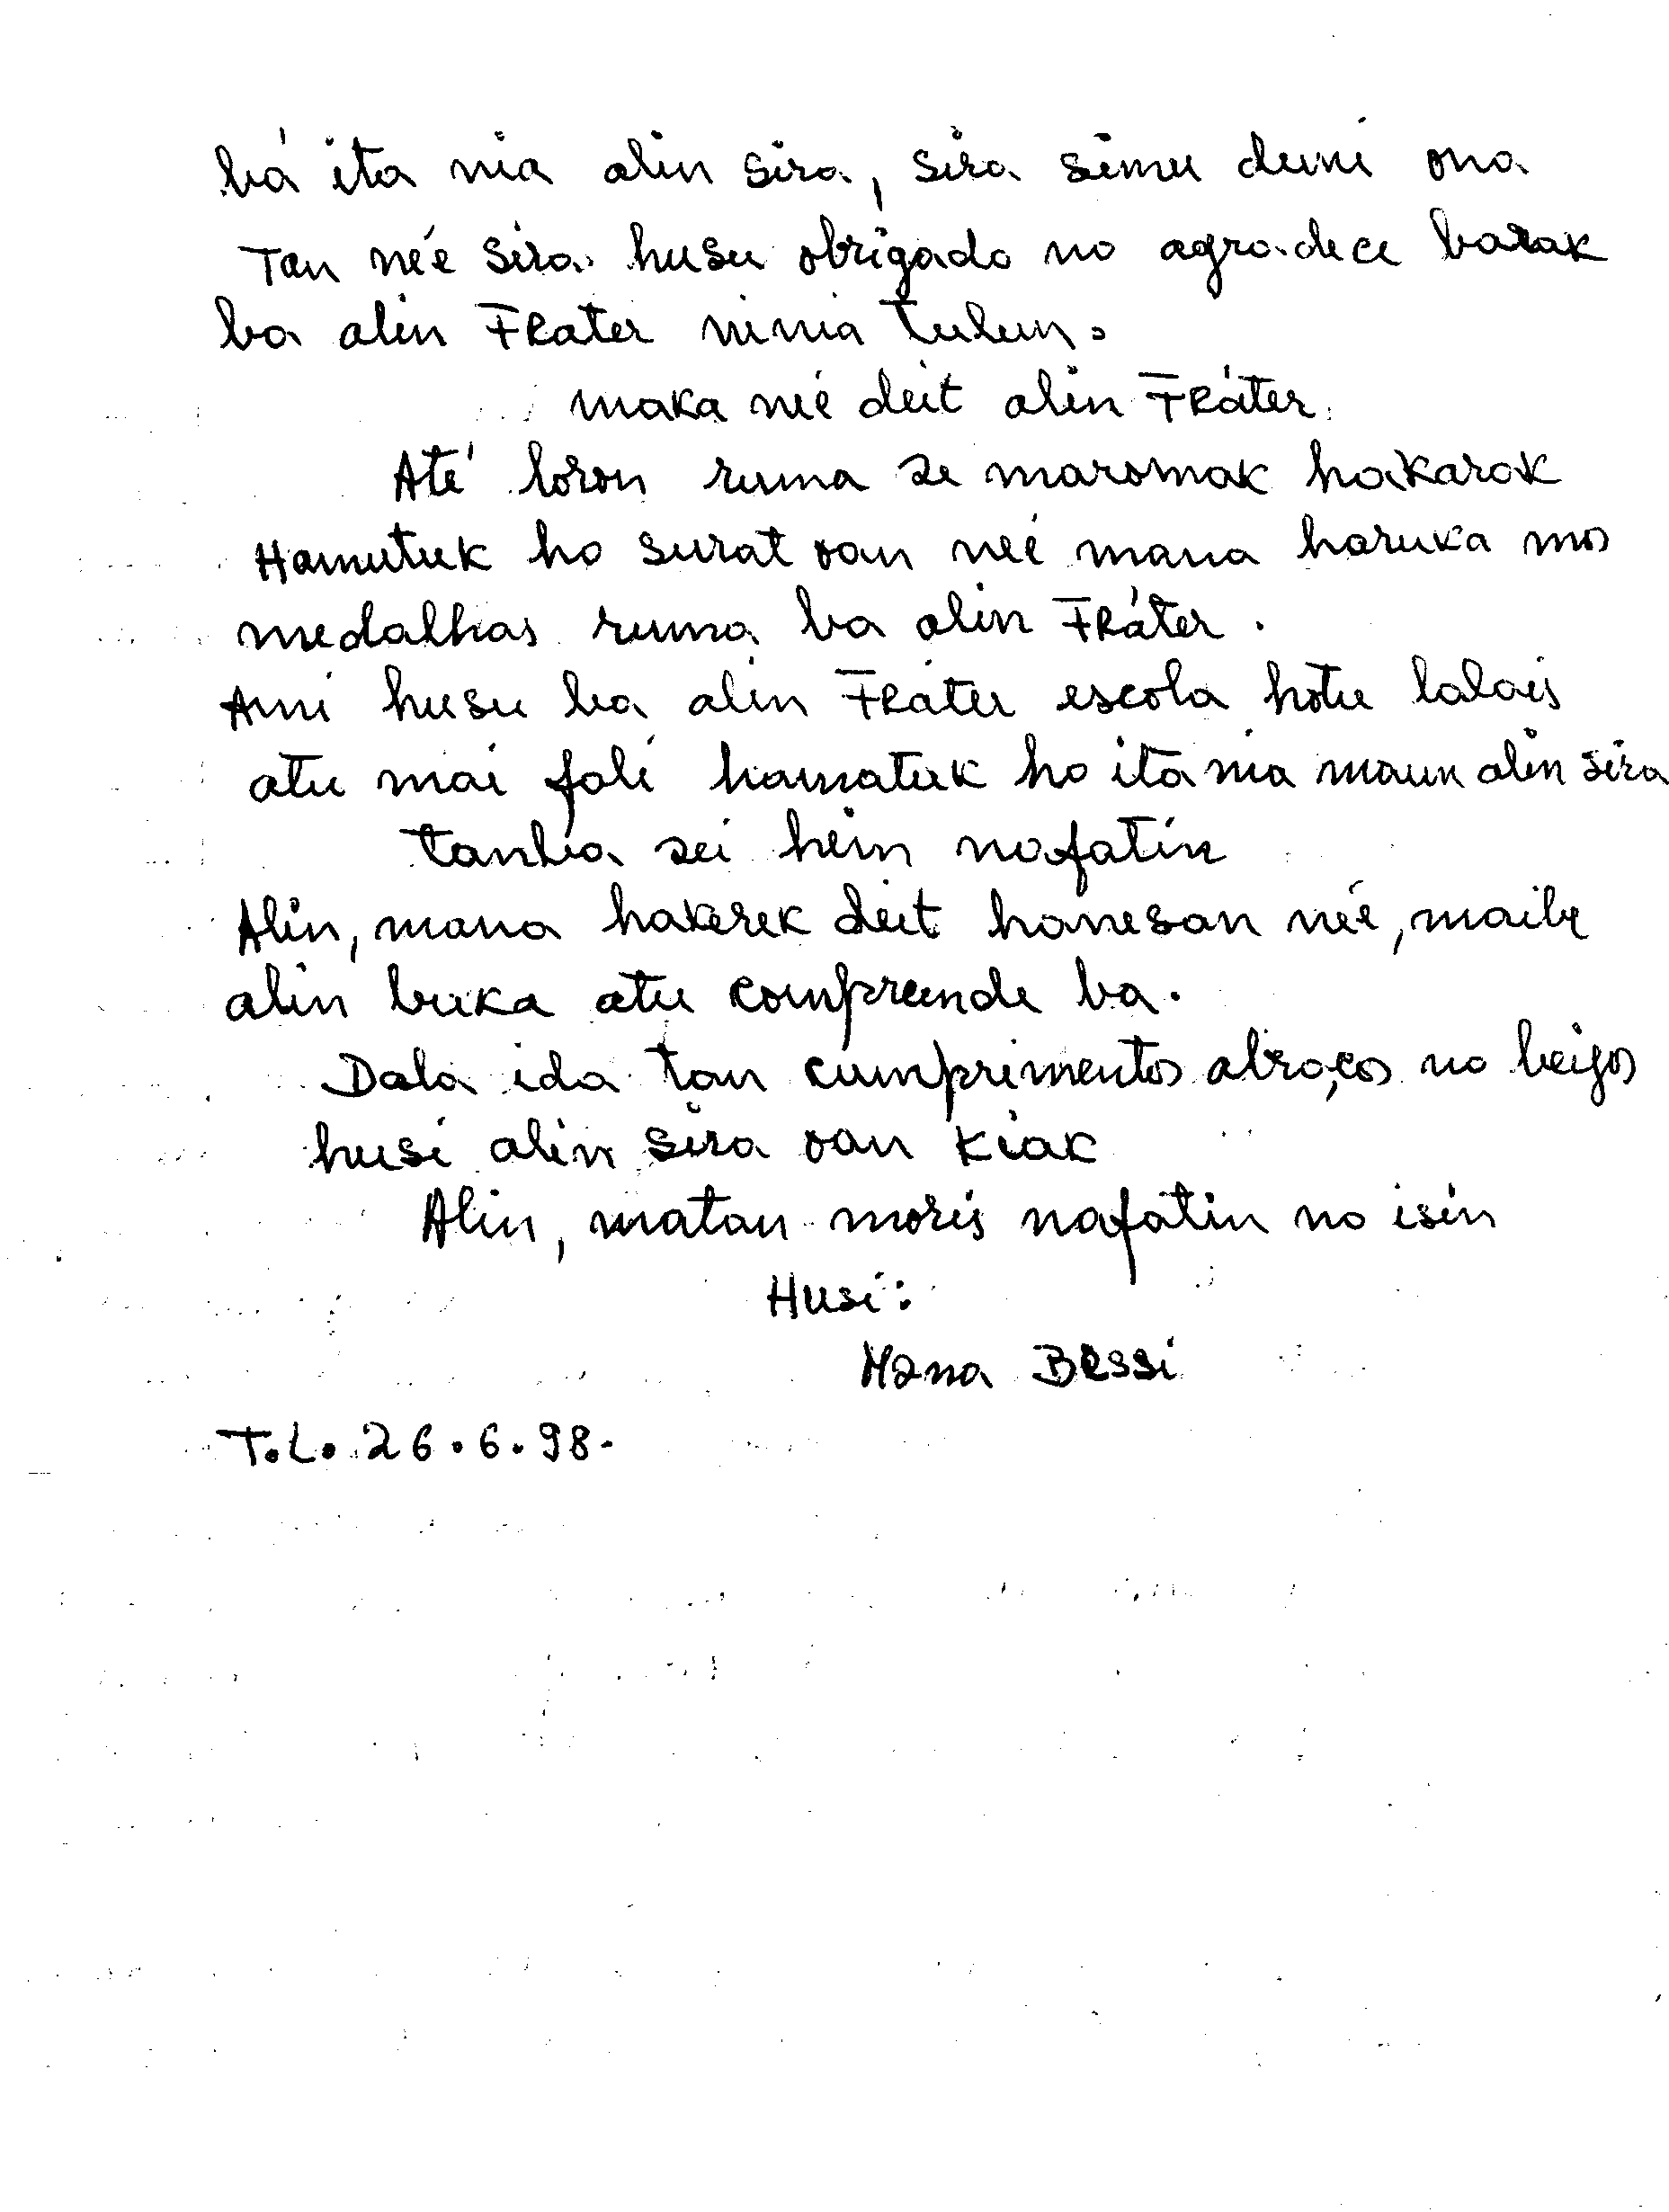 bá ita nia alin sira, sira simu duni ona
Tan né'e sira husu obrigado no agradece barak
ba alin Frater ninia tulun.
maka né'e deit alin Fráter
Até loron ruma se maromak hakarak
Hamutuk ho surat oan né'e mana haruka mos
medalhas ruma ba alin Fráter.
Ami husu ba alin Fráter escola hotu lalais
atu mai fali hamatuk ho ita nia maun alin sira
tanba sei hein nafatin
Alin, mana hakerek deit hanesan né'e, maibe
alin buka atu compreende ba.
Dala ida tan cumprimentos abraços no beijos
husi alin sira oan kiak
Alin, matan moris nafatin no isin
Husi:
Mana Bessi
T.L. 26.6.98.